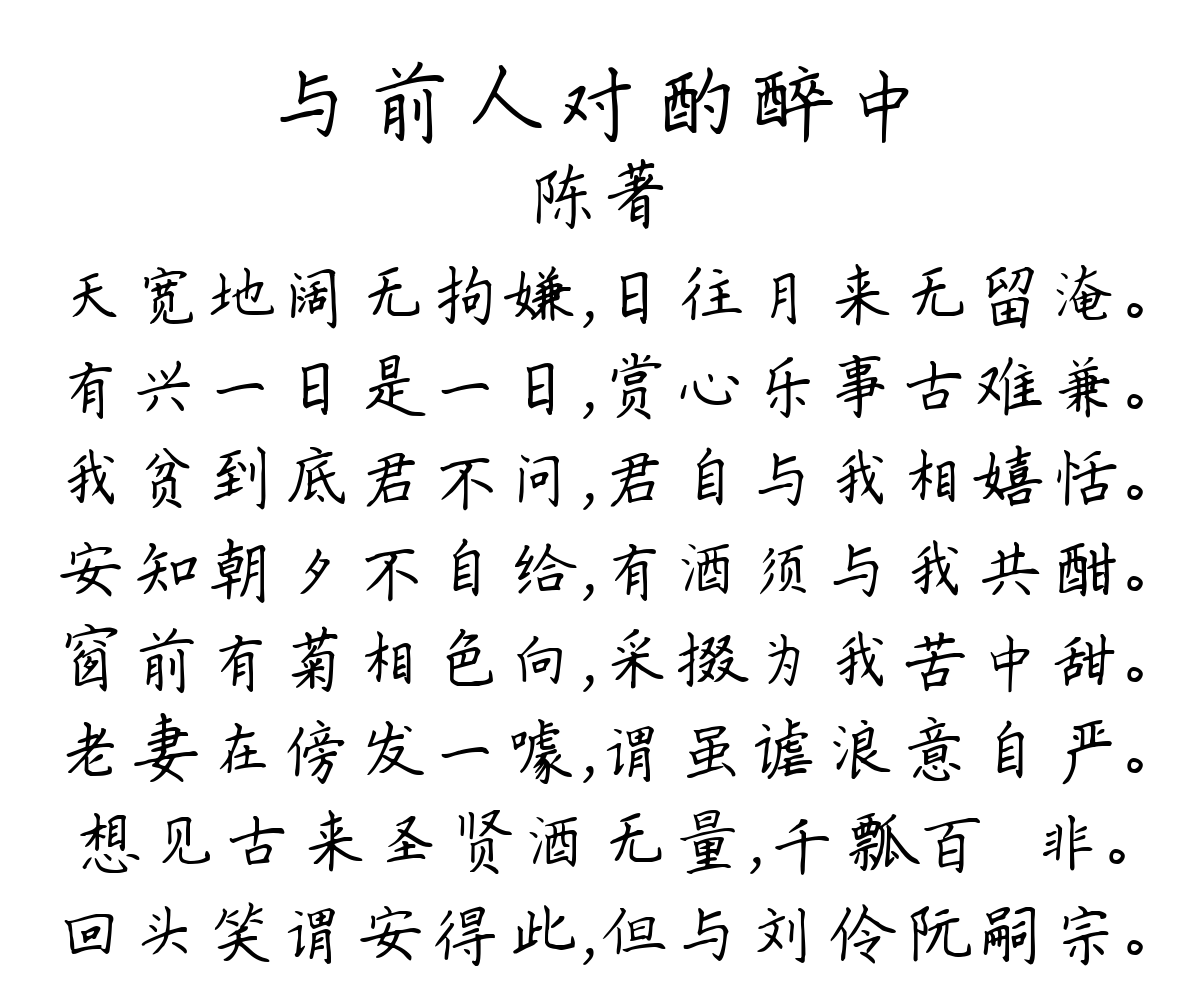 与前人对酌醉中
陈著
天宽地阔无拘嫌,日往月来无留淹。
有兴一日是一日,赏心乐事古难兼。
我贫到底君不问,君自与我相嬉恬。
安知朝夕不自给,有酒须与我共酣。
窗前有菊相色向,采掇为我苦中甜。
老妻在傍发一噱,谓虽谑浪意自严。
想见古来圣贤酒无量,千瓢百 非。
回头笑谓安得此,但与刘伶阮嗣宗。